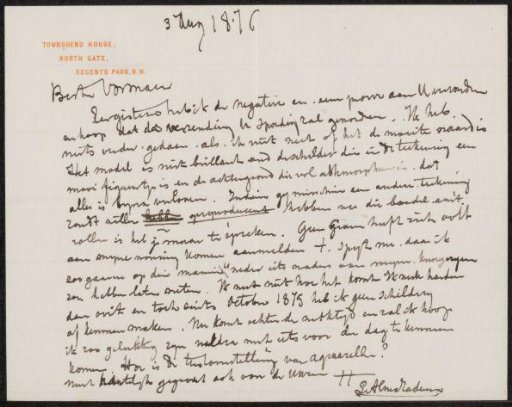 3 Aug 1876
TOWNSHEND HOUSE,
NORTH GATE,
REGENTS PARK, N.W.
Beste Vosmaer
Eergisteren heb ik de negatieve en een proeve aan U verzonden
en hoop dat de verzending U spoedig zal geworden. Ik heb
niets verder gedaan als ik niet weet of het de moeite waard is
Het model is niet brillant and de schilder die in de teekening een
mooi figuurtje is en de achtergrond die vol is dat
alles is bijna verloren. Indien gij misschien een andere teekening
zoudt willen hebben gereproduceerd hebben
zullen is het maar te spreken. Geen heeft zich ooit
aan onze woning komen aanmelden +. Spijt me daar ik
zoo gaarne op die manier weder iets nader van mijne
zou hebben laten weten. Ik weet niet hoe het komt Ik werk harder
dan ooit en toch sints October 1875 heb ik geen schilderij
af kunnen maken. Nu komt echter de en zal ik hoop
ik zoo gelukkig zijn weldra met iets voor den dag te kunnen
komen. Hoe is de tentoonstelling van aquarelle?
Weest hartelijk gegroet ook van de Uwen
L Alma Tadema